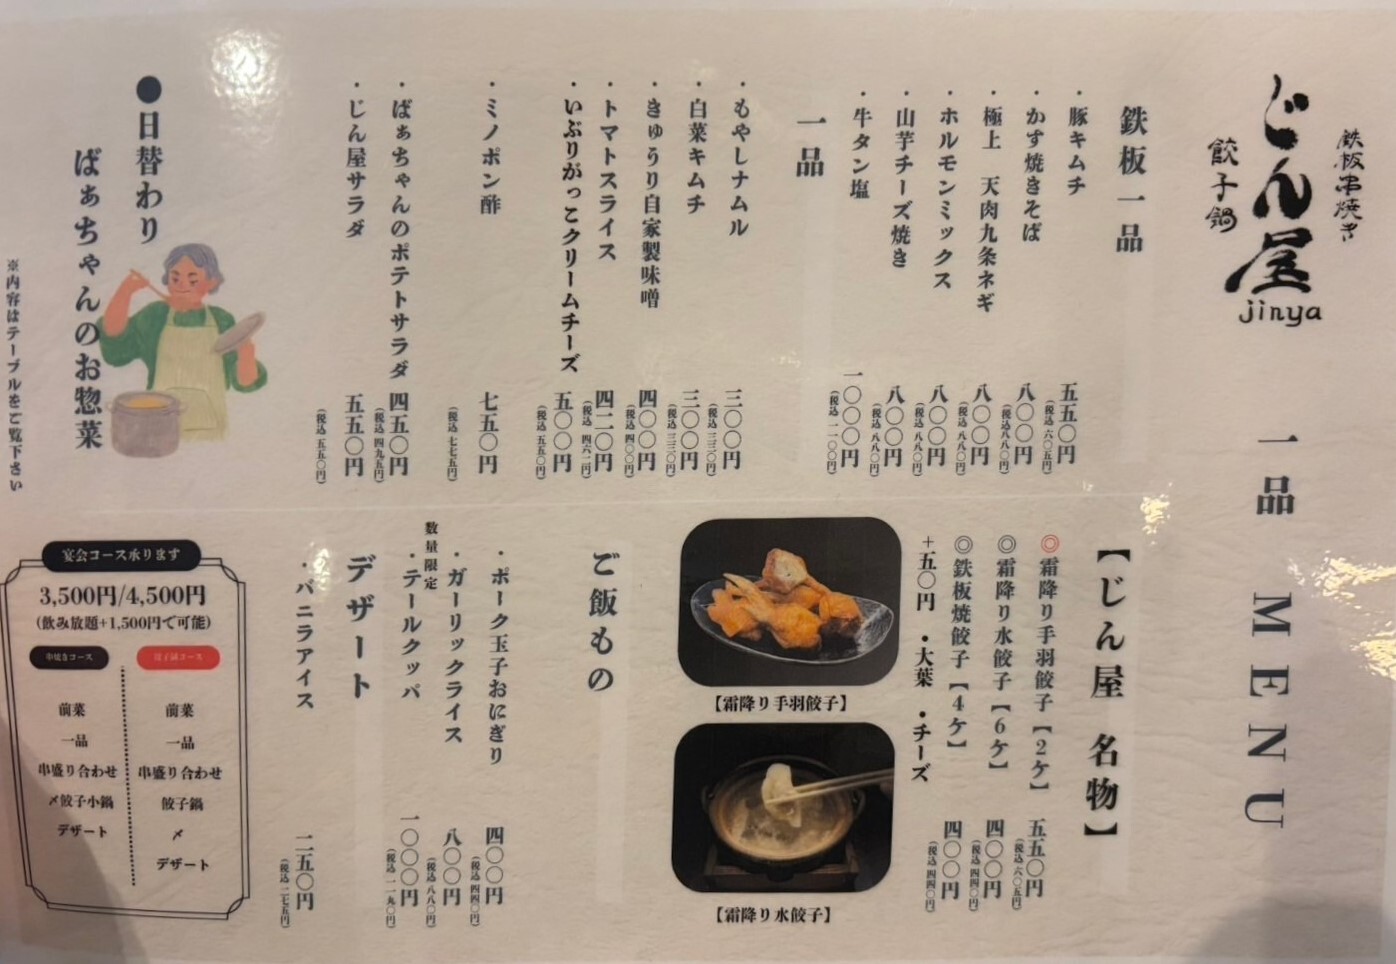 鉄板串焼き
じん屋
jinya
餃子鍋
一品 MENU
鉄板一品
・豚キムチ 五五〇円
(税込 六〇五円)
・かす焼きそば 八〇〇円
(税込 八八〇円)
・極上 天肉九条ネギ 八〇〇円
(税込 八八〇円)
・ホルモンミックス 八〇〇円
(税込 八八〇円)
・山芋チーズ焼き 八〇〇円
(税込 八八〇円)
・牛タン塩 一〇〇〇円
(税込 一一〇〇円)
一品
・もやしナムル 三〇〇円
(税込 三三〇円)
・白菜キムチ 三〇〇円
(税込 三三〇円)
・きゅうり自家製味噌 四〇〇円
(税込 四〇〇円)
・トマトスライス 四二〇円
(税込 四六二円)
・いぶりがっこクリームチーズ 五〇〇円
(税込 五五〇円)
・ミノポン酢 七五〇円
(税込 七七五円)
・ばぁちゃんのポテトサラダ 四五〇円
(税込 四九五円)
・じん屋サラダ 五五〇円
(税込 五五〇円)
●日替わり
ばぁちゃんのお惣菜
※内容はテーブルをご覧下さい
【じん屋 名物】
◎霜降り手羽餃子【2ケ】 五五〇円
(税込 六〇五円)
◎霜降り水餃子【6ケ】 四〇〇円
(税込 四四〇円)
◎鉄板焼餃子【4ケ】 四〇〇円
(税込 四四〇円)
+五〇円 ・大葉 ・チーズ
【霜降り手羽餃子】
【霜降り水餃子】
ご飯もの
・ポーク玉子おにぎり 四〇〇円
(税込 四四〇円)
・ガーリックライス 八〇〇円
(税込 八八〇円)
数量限定
・テールクッパ 一〇〇〇円
デザート
・バニラアイス 二五〇円
(税込 二七五円)
宴会コース承ります
3,500円/4,500円
(飲み放題+1,500円で可能)
串焼きコース
餃子鍋コース
前菜
一品
串盛り合わせ
〆餃子小鍋
デザート
前菜
一品
串盛り合わせ
餃子鍋
〆
デザート